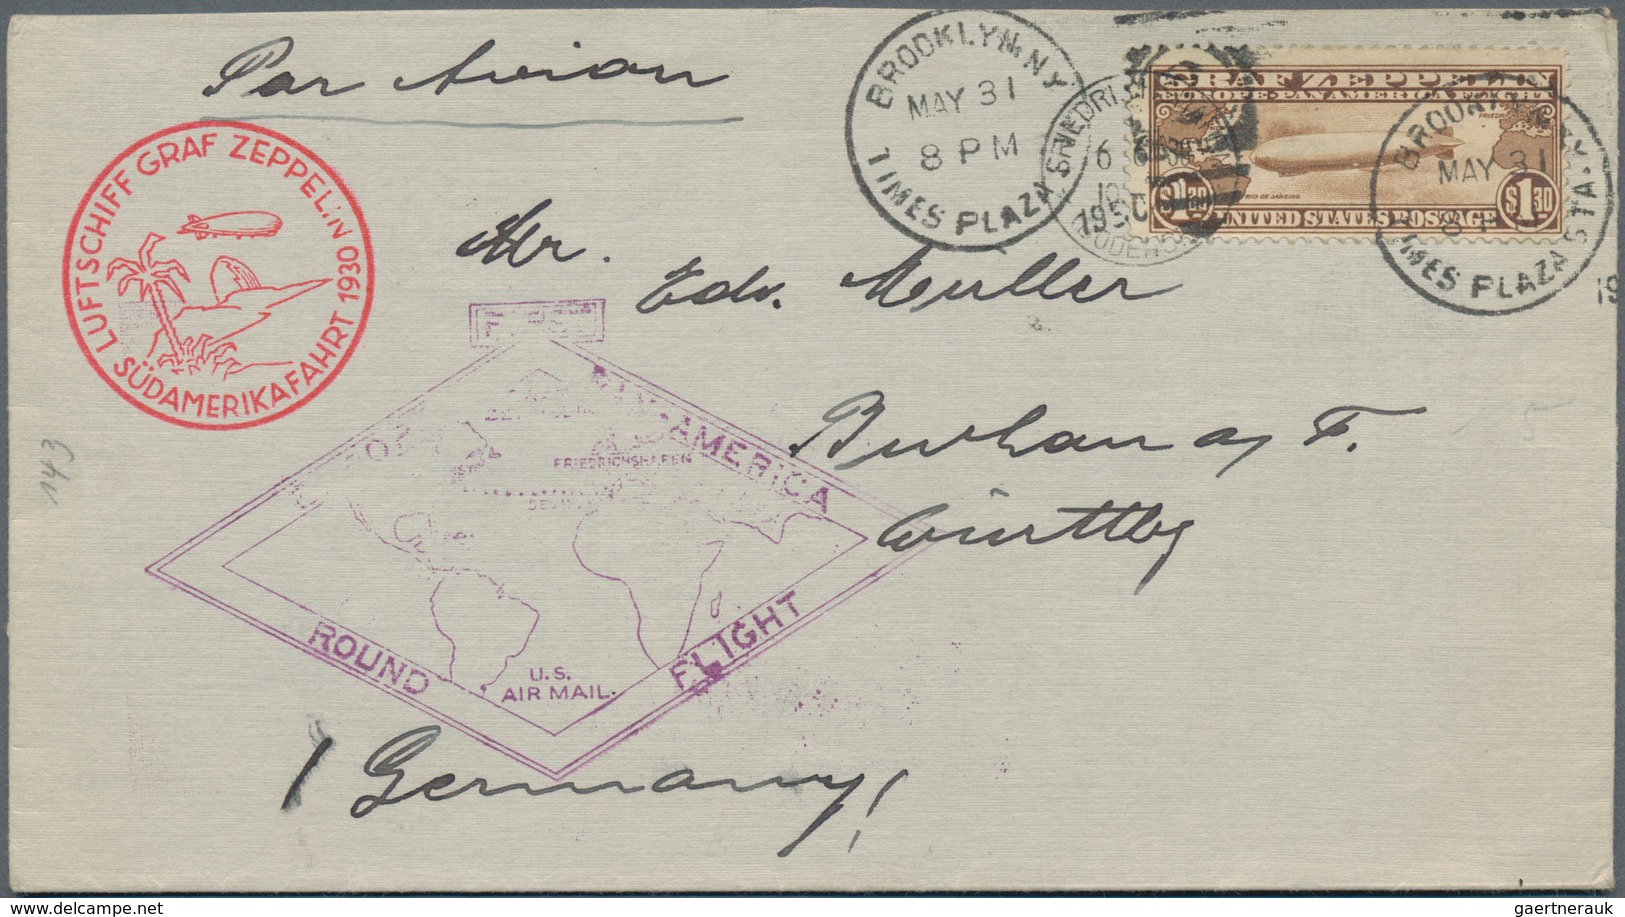 Par Avion
BROOKLYN, N.Y.
MAY 31
8 PM
TIMES PLAZA STA.
1930
FRIEDRICHSHAFEN
6 6 30
(BODENSEE)
GRAF ZEPPELIN
EUROPE-PAN AMERICA FLIGHT
RIO DE JANEIRO
$1.30 $1.30
UNITED STATES POSTAGE
BROOKLYN, N.Y.
MAY 31
8 PM
TIMES PLAZA STA.
19
LUFTSCHIFF GRAF ZEPPELIN 1930
SÜDAMERIKAFAHRT
Mr.
Edw. Müller
FIRST
PAN-AMERICA
FRIEDRICHSHAFEN
ROUND FLIGHT
U.S.
AIR MAIL.
143
Württbg
/ Germany /
gaertnerauk